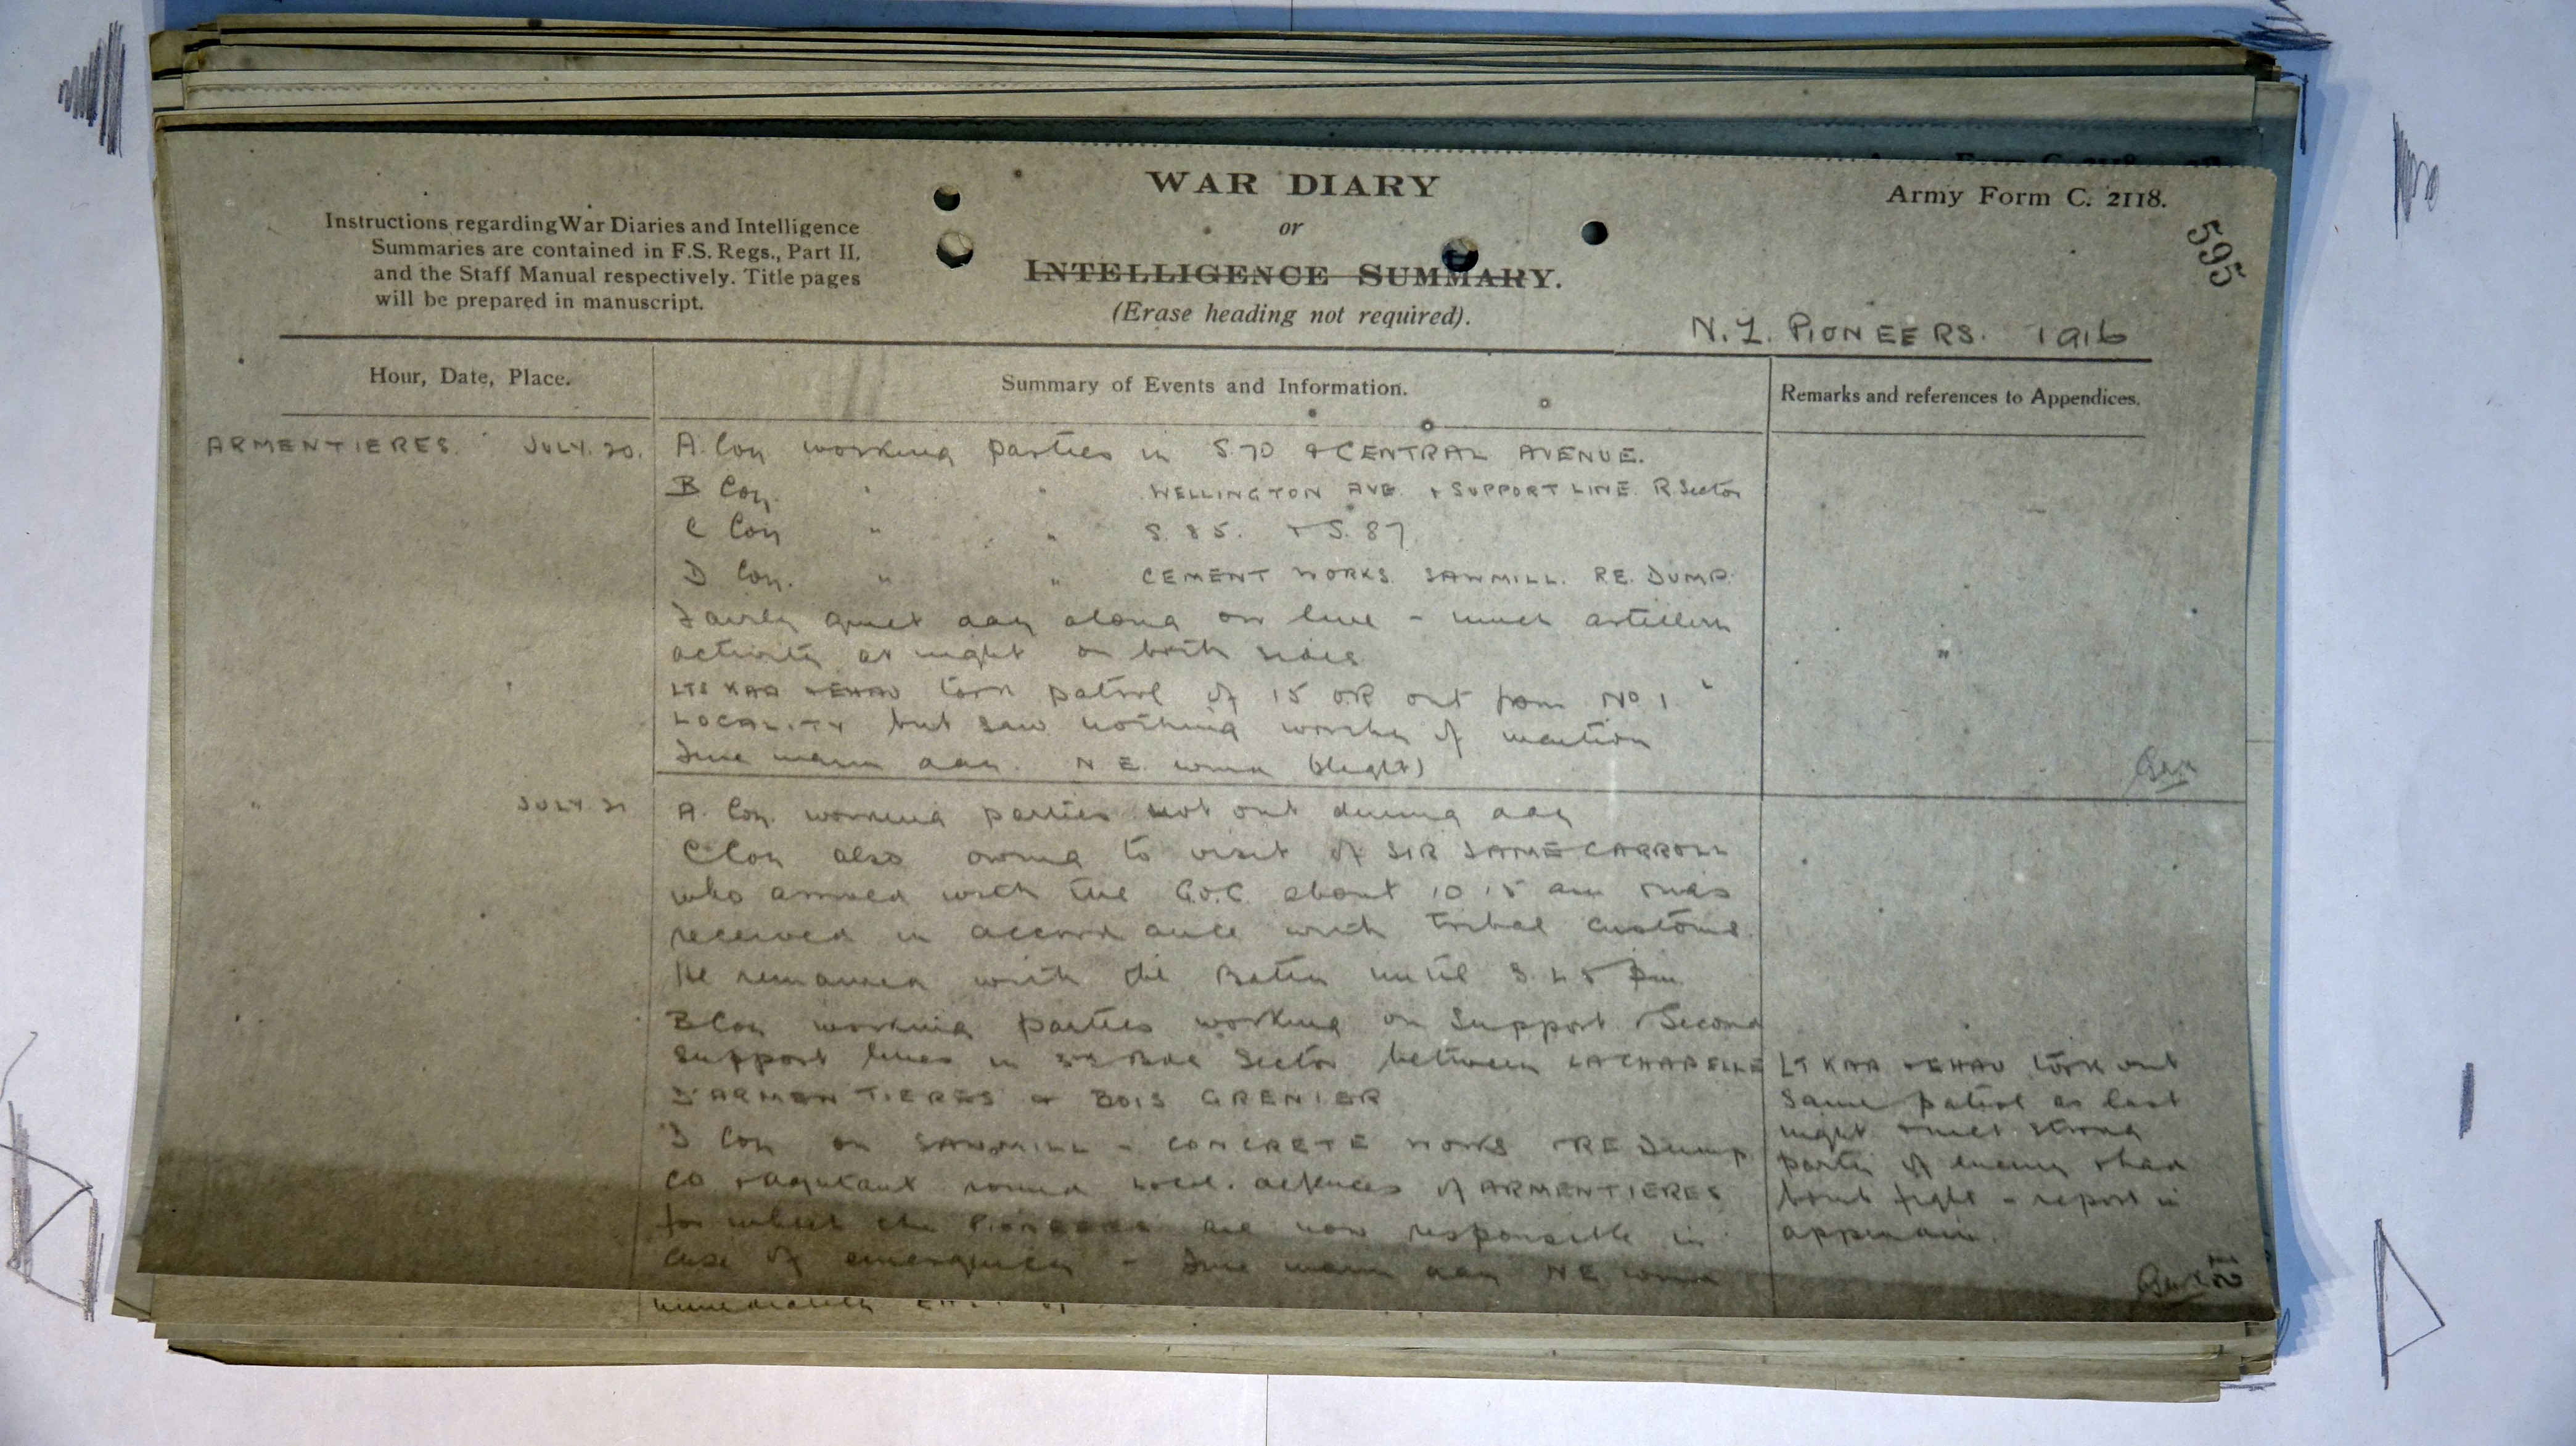 Army Form C. 2118.
WAR DIARY
or
INTELLIGENCE SUMMARY.
(Erase heading not required).
Instructions regarding War Diaries and Intelligence
Summaries are contained in F.S. Regs., Part II,
and the Staff Manual respectively. Title pages
will be prepared in manuscript.
595
N.Z. PIONEERS. 1916
Hour, Date, Place.
Summary of Events and Information.
Remarks and references to Appendices.
ARMENTIERES. JULY. 20.
A. Coy working parties in S.70 & CENTRAL AVENUE.
B Coy. " " WELLINGTON AVE. & SUPPORT LINE. R. Sector
C Coy " " S. 85. & S. 87
D Coy. " " CEMENT WORKS. SAWMILL. R.E. DUMP.
Fairly quiet day along our line - much artillery
activity at night on both sides
LTS KAA & EHAU took patrol of 15 OR out from No. 1
LOCALITY but saw nothing worthy of mention
Fine warm day. N E. wind (slight)
" JULY. 21
A. Coy. working parties not out during day
C Coy also owing to visit of SIR JAMES CARROLL
who arrived with the G.O.C. about 10 15 am & was
received in accordance with tribal customs.
He remained with the Battn until 3.45 pm
B Coy working parties working on Support & Second
Support lines in Bde Sector between LA CHAPELLE
D'ARMENTIERES & BOIS GRENIER
D Coy on SAWMILL - CONCRETE WORKS & RE Dump
CO & Adjutant round local. defences of ARMENTIERES
for which the Pioneers are now responsible in
case of emergency - Fine warm day NE wind
LT KAA & EHAU took out
same patrol as last
night & met strong
party of enemy & had
bomb fight - report in
appendix.
12
immediately